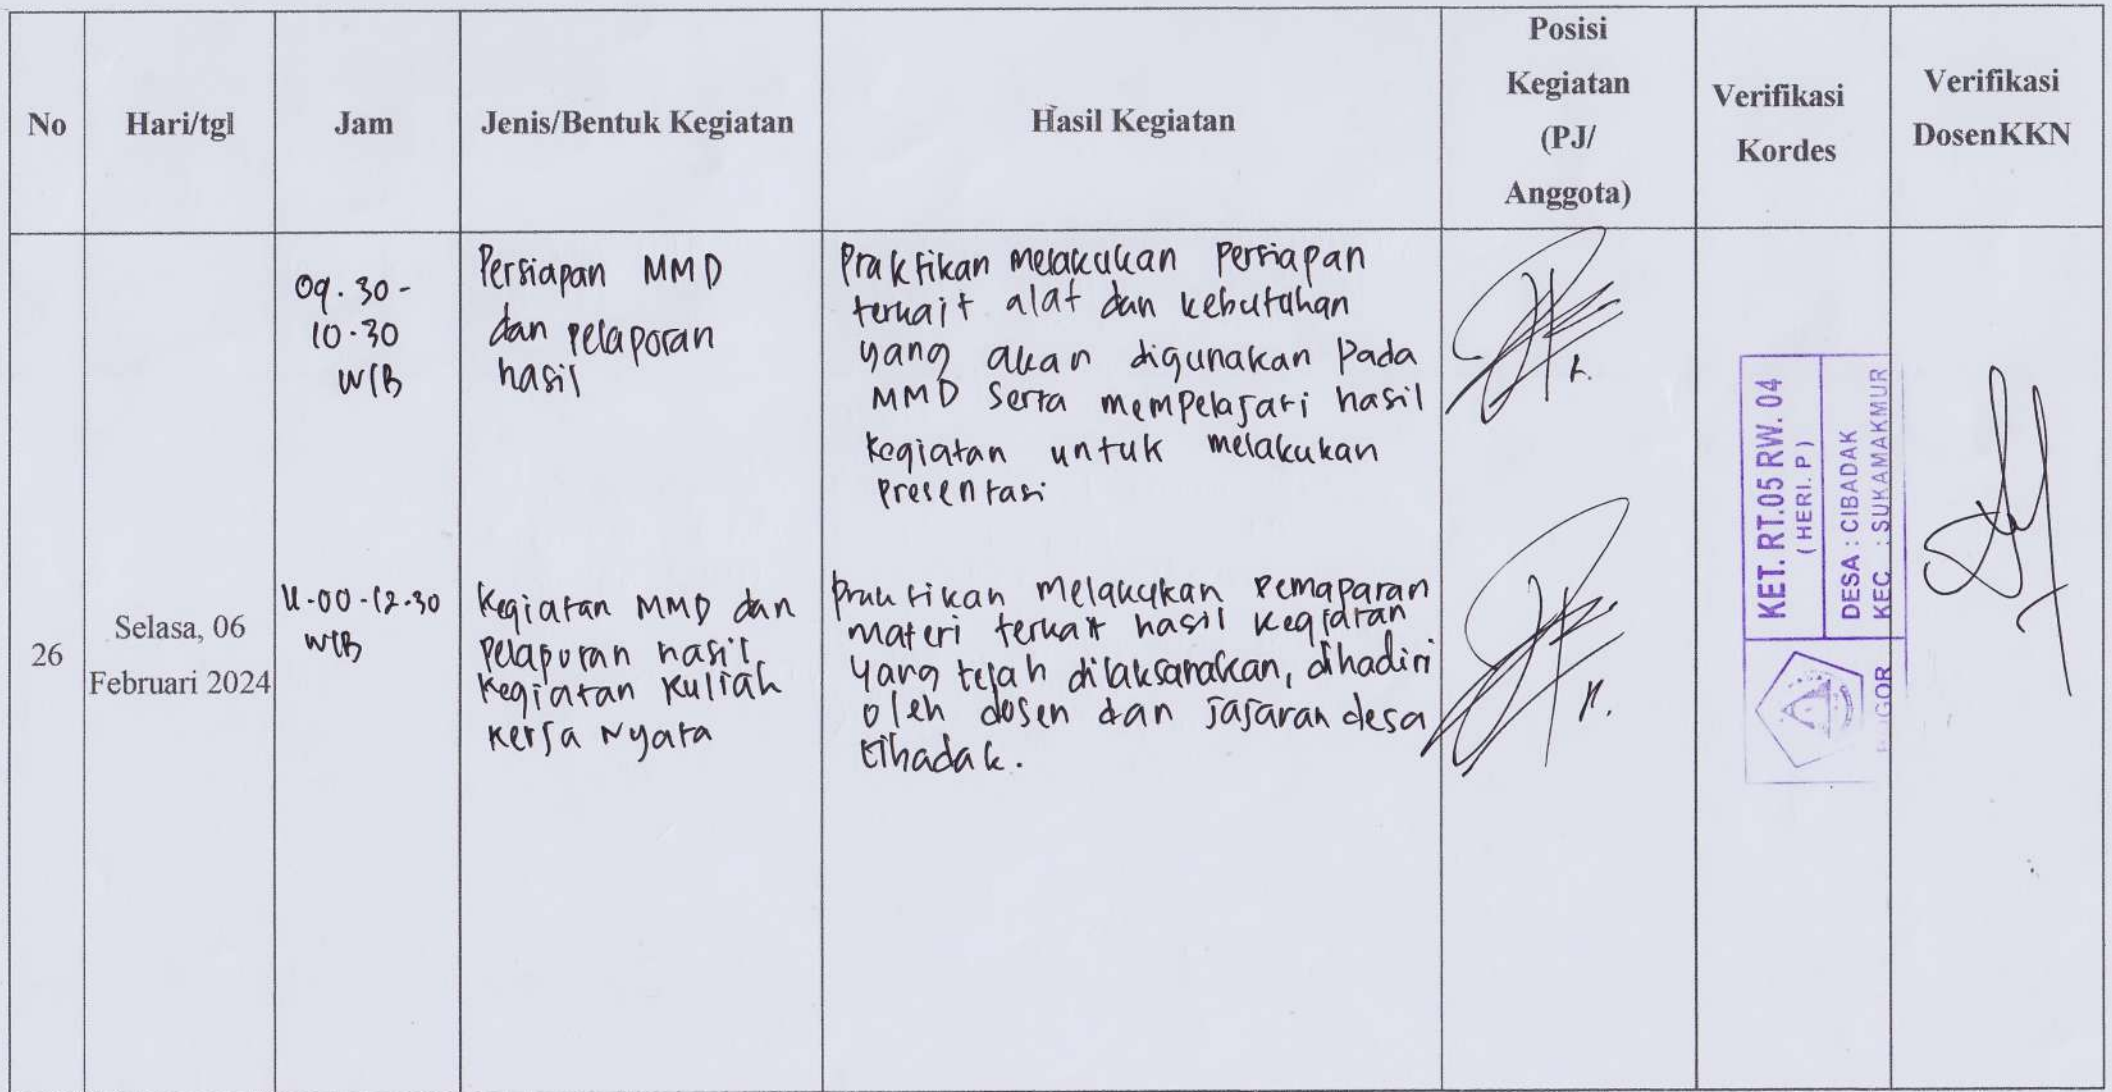 No
Hari/tgl
Jam
Jenis/Bentuk Kegiatan
Hasil Kegiatan
Posisi
Kegiatan
(PJ/
Anggota)
Verifikasi
Kordes
Verifikasi
DosenKKN
26
Selasa, 06
Februari 2024
09.30-
10.30
WIB
Persiapan MMD
dan pelaporan
hasil
Praktikan melakukan persiapan
terkait alat dan kebutuhan
yang akan digunakan pada
MMD serta mempelajari hasil
kegiatan untuk melakukan
presentasi
11.00-12.30
WIB
Kegiatan MMD dan
pelaporan hasil
kegiatan Kuliah
Kerja Nyata
Praktikan melakukan pemaparan
materi terkait hasil kegiatan
yang telah dilaksanakan, dihadiri
oleh dosen dan jajaran desa
Cibadak.
KET. RT.05 RW. 04
( HERI. P )
DESA : CIBADAK
KEC : SUKAMAKMUR